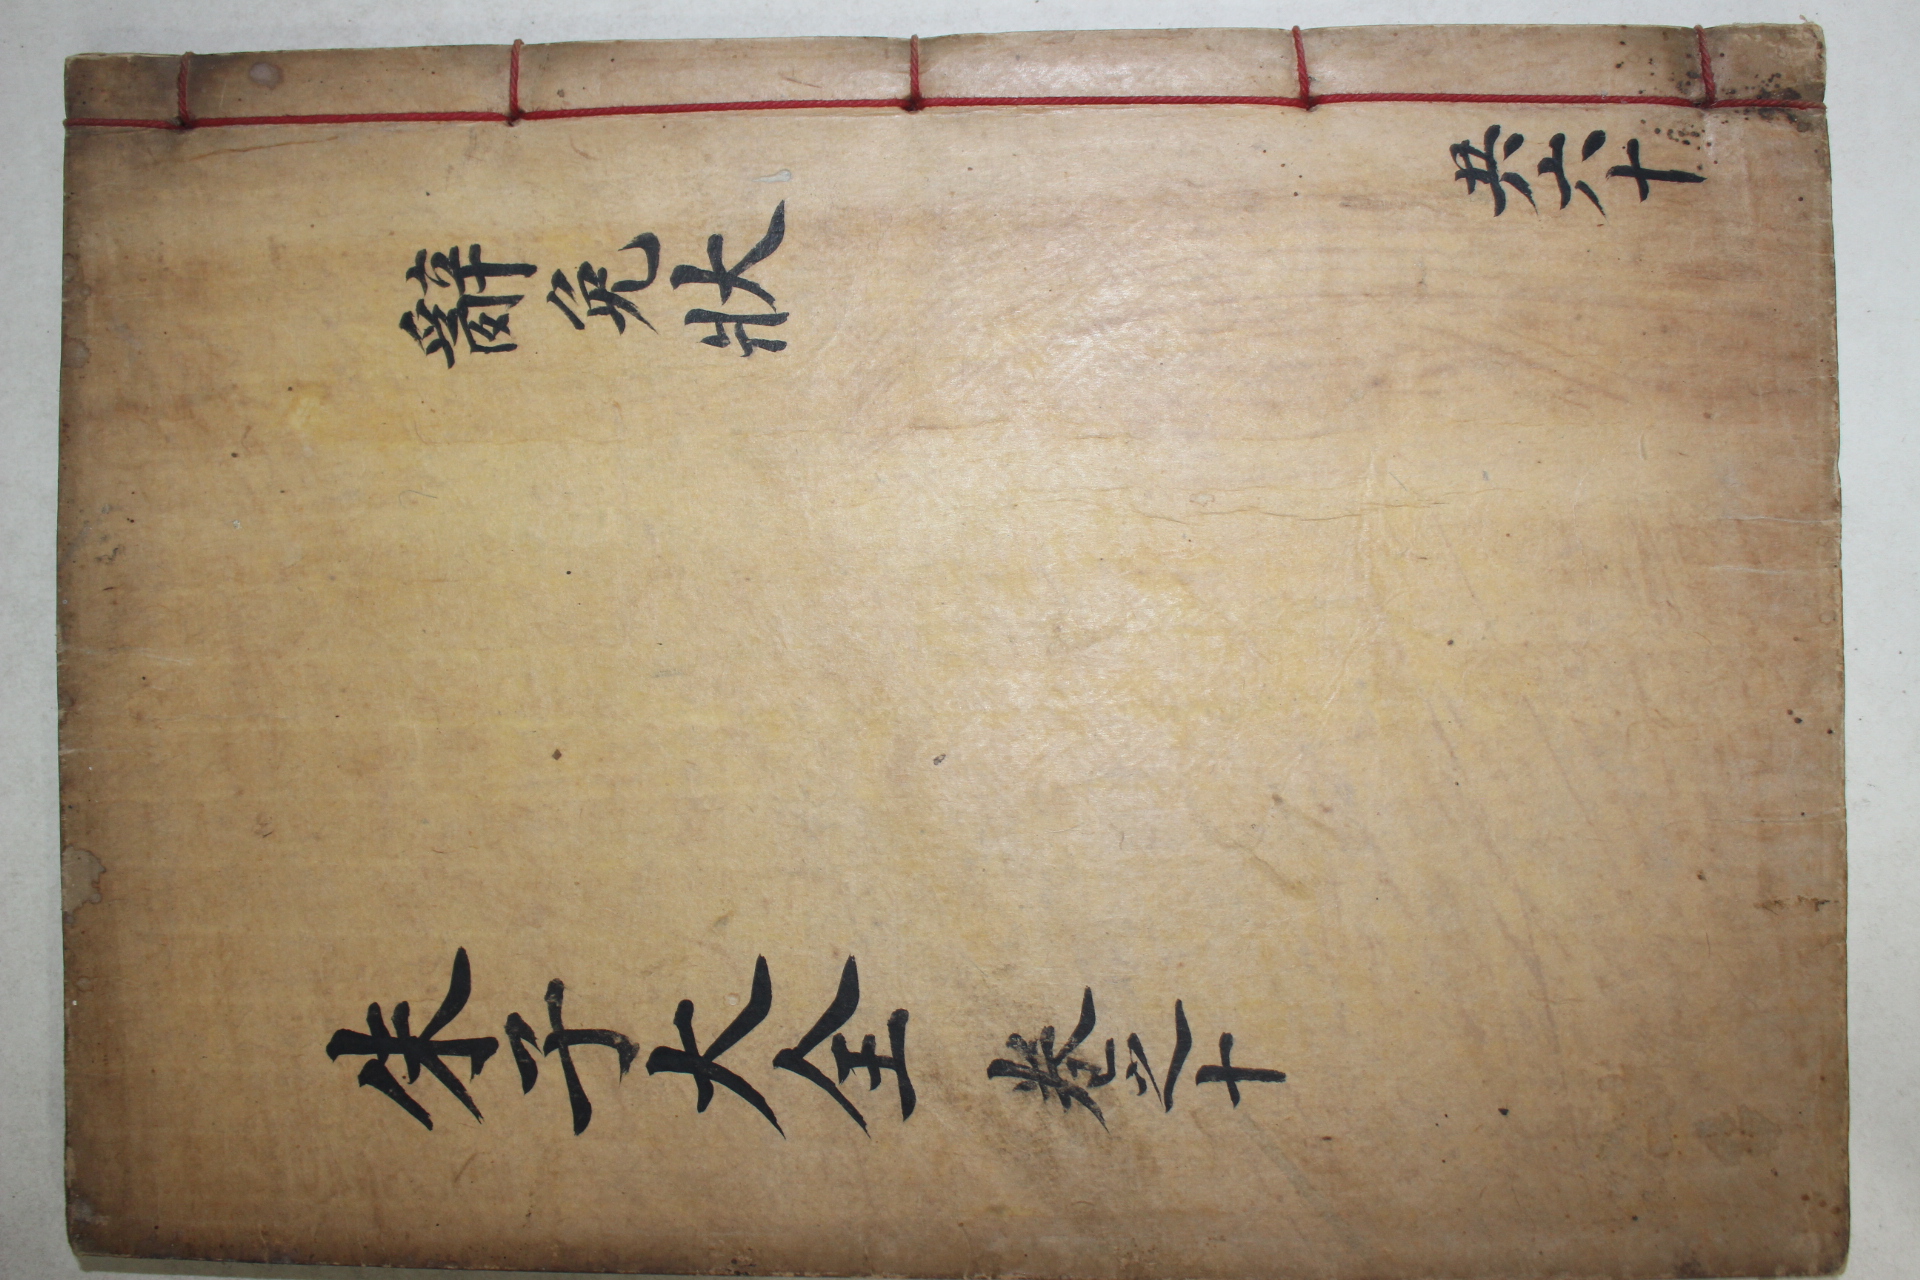 朱子大全 卷之十
辭免狀
共六十